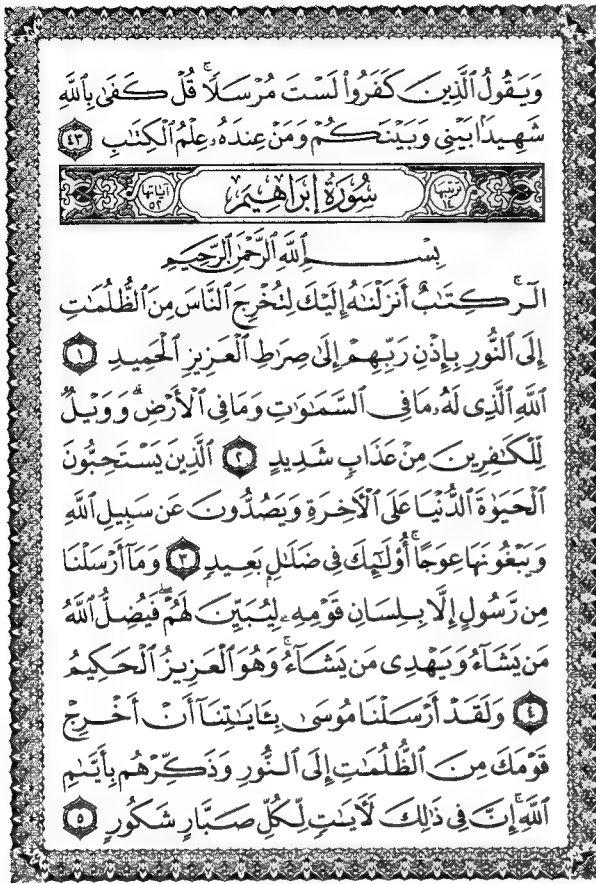 وَيَقُولُ ٱلَّذِينَ كَفَرُوا۟ لَسْتَ مُرْسَلًا ۚ قُلْ كَفَىٰ بِٱللَّهِ
شَهِيدًۢا بَيْنِى وَبَيْنَكُمْ وَمَنْ عِندَهُۥ عِلْمُ ٱلْكِتَٰبِ ٤٣
ترتيبها ١٤ سُورَةُ إِبْرَاهِيمَ آياتها ٥٢
بِسْمِ ٱللَّهِ ٱلرَّحْمَٰنِ ٱلرَّحِيمِ
الٓر ۚ كِتَٰبٌ أَنزَلْنَٰهُ إِلَيْكَ لِتُخْرِجَ ٱلنَّاسَ مِنَ ٱلظُّلُمَٰتِ
إِلَى ٱلنُّورِ بِإِذْنِ رَبِّهِمْ إِلَىٰ صِرَٰطِ ٱلْعَزِيزِ ٱلْحَمِيدِ ١
ٱللَّهِ ٱلَّذِى لَهُۥ مَا فِى ٱلسَّمَٰوَٰتِ وَمَا فِى ٱلْأَرْضِ ۗ وَوَيْلٌ
لِّلْكَٰفِرِينَ مِنْ عَذَابٍ شَدِيدٍ ٢ ٱلَّذِينَ يَسْتَحِبُّونَ
ٱلْحَيَوٰةَ ٱلدُّنْيَا عَلَى ٱلْأَخِرَةِ وَيَصُدُّونَ عَن سَبِيلِ ٱللَّهِ
وَيَبْغُونَهَا عِوَجًا ۚ أُو۟لَٰٓئِكَ فِى ضَلَٰلٍۭ بَعِيدٍ ٣ وَمَآ أَرْسَلْنَا
مِن رَّسُولٍ إِلَّا بِلِسَانِ قَوْمِهِۦ لِيُبَيِّنَ لَهُمْ ۖ فَيُضِلُّ ٱللَّهُ
مَن يَشَآءُ وَيَهْدِى مَن يَشَآءُ ۚ وَهُوَ ٱلْعَزِيزُ ٱلْحَكِيمُ
٤ وَلَقَدْ أَرْسَلْنَا مُوسَىٰ بِـَٔايَٰتِنَآ أَنْ أَخْرِجْ
قَوْمَكَ مِنَ ٱلظُّلُمَٰتِ إِلَى ٱلنُّورِ وَذَكِّرْهُم بِأَيَّىٰمِ
ٱللَّهِ ۚ إِنَّ فِى ذَٰلِكَ لَءَايَٰتٍ لِّكُلِّ صَبَّارٍ شَكُورٍ ٥